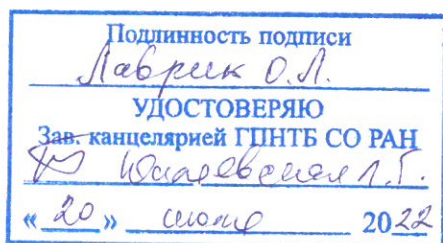 Подлинность подписи
Лаврик О.Л.
УДОСТОВЕРЯЮ
Зав. канцелярией ГПНТБ СО РАН
Л.Г.
«20» июня 2022